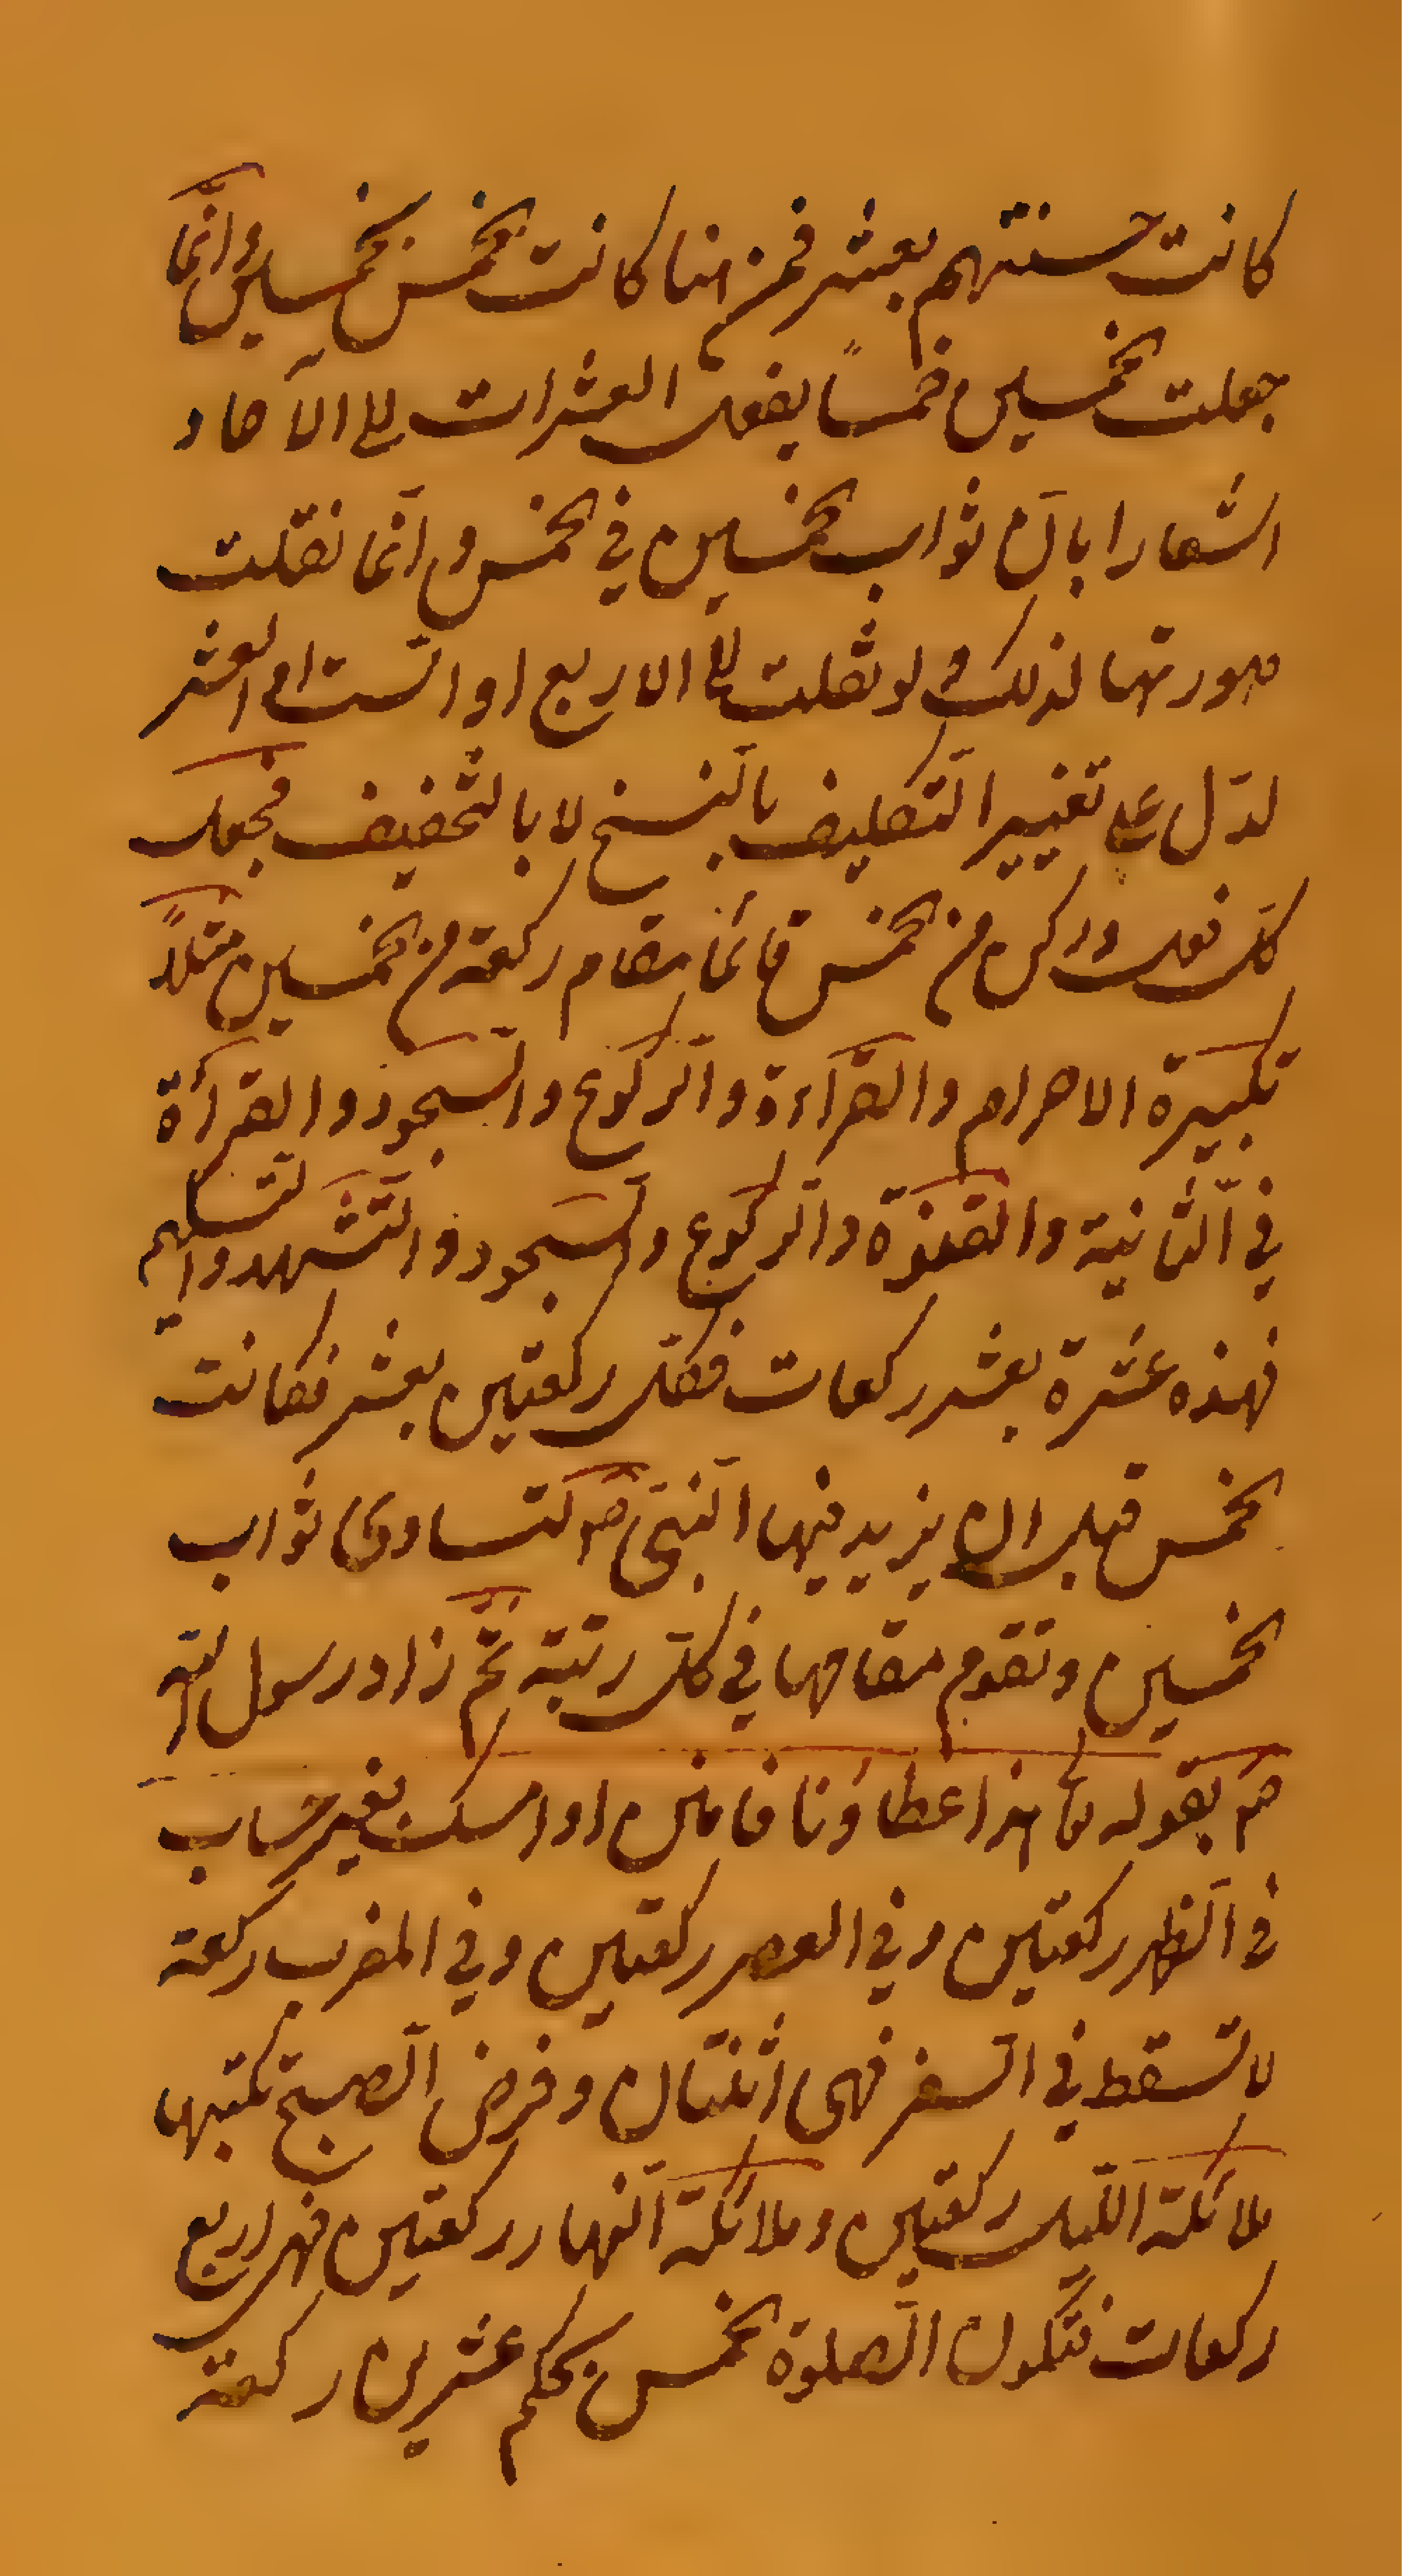 كانت حسنتهم بعشر فمن هنا كانت الخمس بخمسين وانّما
جعلت الخمسين خمساً بفعل العشرات الى الآحاد
اشعارا بانّ ثواب الخمسين في الخمس وانّما نقلت
صورتها لذلك ولو نقلت الى الاربع او السّت او العشر
لدّل على تغيير التّكليف بالنّسخ لا بالتّخفيف فجعل
كلّ فعل وركن من الخمس قائما مقام ركعة من الخمسين مثلاً
تكبيرة الاحرام والقرآءة والرّكوع والسّجود والقرآءة
في الثّانية والقنوة والرّكوع والسّجود والتّشهد والتّسليم
فهذه عشرة بعشر ركعات فكلّ ركعتين بعشر فكانت
الخمس قبل ان يزيد فيها النّبيّ ص لتساوى ثواب
الخمسين وتقوم مقامها في كلّ رتبة ثمّ زاد رسول الله
ص بقوله تع هذا عطاؤنا فامنن او امسك بغير حساب
في الظّهر ركعتين وفي العصر ركعتين وفي المغرب ركعة
لا تسقط في السّفر فهى اثنتان وفرض الصّبح تكتبها
ملائكة اللّيل ركعتين وملائكة النّهار ركعتين فهى اربع
ركعات فتكون الصّلوة الخمس بحكم عشرين ركعة